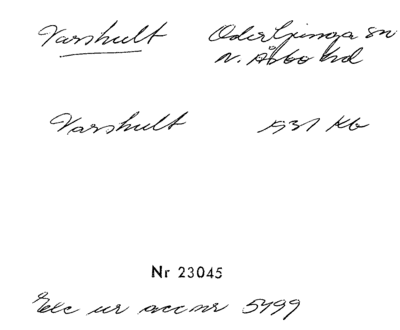 Varshult Oderljunga sn
N. Åsbo hd
Varshult 1531 Kb
Nr 23045
Exc ur acc nr 5499